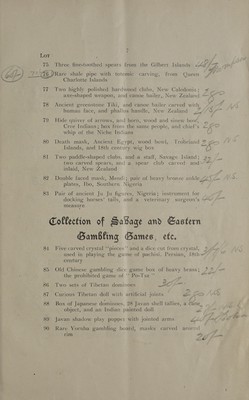 7
Lot
75 Three fourteenhed spears from the Gilbert Islands
76 Rare shale pipe with totemic carving, from Queen
Charlotte Islands
77 Two highly polished hardwood clubs, New Caledonia;
axe-shaped weapon, and canoe bailer, New Zealand
78 Ancient greenstone Tiki, and canoe bailer carved with
human face, and phallus handle, New Zealand
79 Hide quiver of arrows, and horn, wood and sinew bow,
Cree Indians; box from the same people, and chief's
whip of the Niche Indians
80 Death mask, Ancient Egypt, wood bowl, Trobriand
Islands, and 18th century wig box
81 Two paddle-shaped clubs, and a staff, Savage Island;
two carved spears, and a spear club carved and
inlaid, New Zealand
82 Double faced mask, Mendi; pair of heavy bronze ankle
plates, Ibo, Southern Nigeria
83 Pair of ancient Ju Ju figures, Nigeria; instrument for
docking horses' tails, and a veterinary surgeon's
measure
Collection of Savage and Eastern
Gambling Games, etc.
84 Five carved crystal "pieces" and a dice cut from crystal,
used in playing the game of pachisi. Persian, 18th
century
85 Old Chinese gambling dice game box of heavy brass;
the prohibited game of "Po-Tze"
86 Two sets of Tibetan dominoes
87 Curious Tibetan doll with artificial joints
88 Box of Japanese dominoes, 28 Javan shell tallies, a
object, and an Indian painted doll
89 Javan shadow play puppet with jointed arms
90 Rare Yoruba gambling board, masks carved around
rim